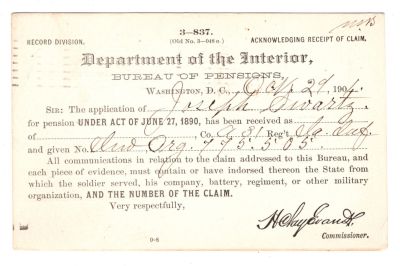 3—837.
(Old No. 3—048 a.)
RECORD DIVISION.
ACKNOWLEDGING RECEIPT OF CLAIM.
Department of the Interior,
BUREAU OF PENSIONS,
WASHINGTON, D. C., Oct. 29, 190
SIR: The application of Joseph Swartz
for pension UNDER ACT OF JUNE 27, 1890, has been received as
of Co. A 31 Reg't Ia. Inf.
and given No. Inv Org. 775.505.
All communications in relation to the claim addressed to this Bureau, and
each piece of evidence, must contain or have indorsed thereon the State from
which the soldier served, his company, battery, regiment, or other military
organization, AND THE NUMBER OF THE CLAIM.
Very respectfully,
H Clay Evans
Commissioner.